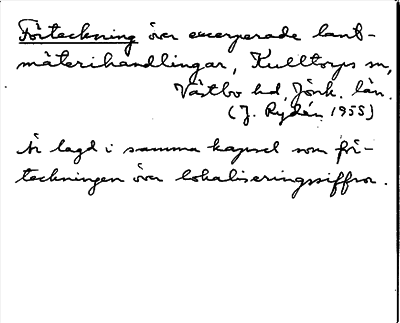 Förteckning över excerperade lant-
mäterihandlingar, Kulltorps sn,
Västbo hd, Jönk. län.
(J. Rydén 1955)
Är lagd i samma kapsel som för-
teckningen över lokaliseringssiffror.